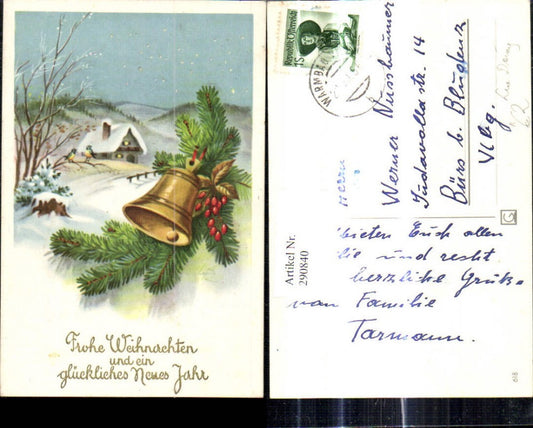 Frohe Weihnachten
und ein
glückliches Neues Jahr
Republik Österreich
1S
WARMBA
Werner Nussbaumer
Judavollastr. 14
Bürs b. Bludenz
Vlbg.
bieten Euch allen
und recht
herzliche Grüße
von Familie
Tarmann.
Artikel Nr.
290840
G
618